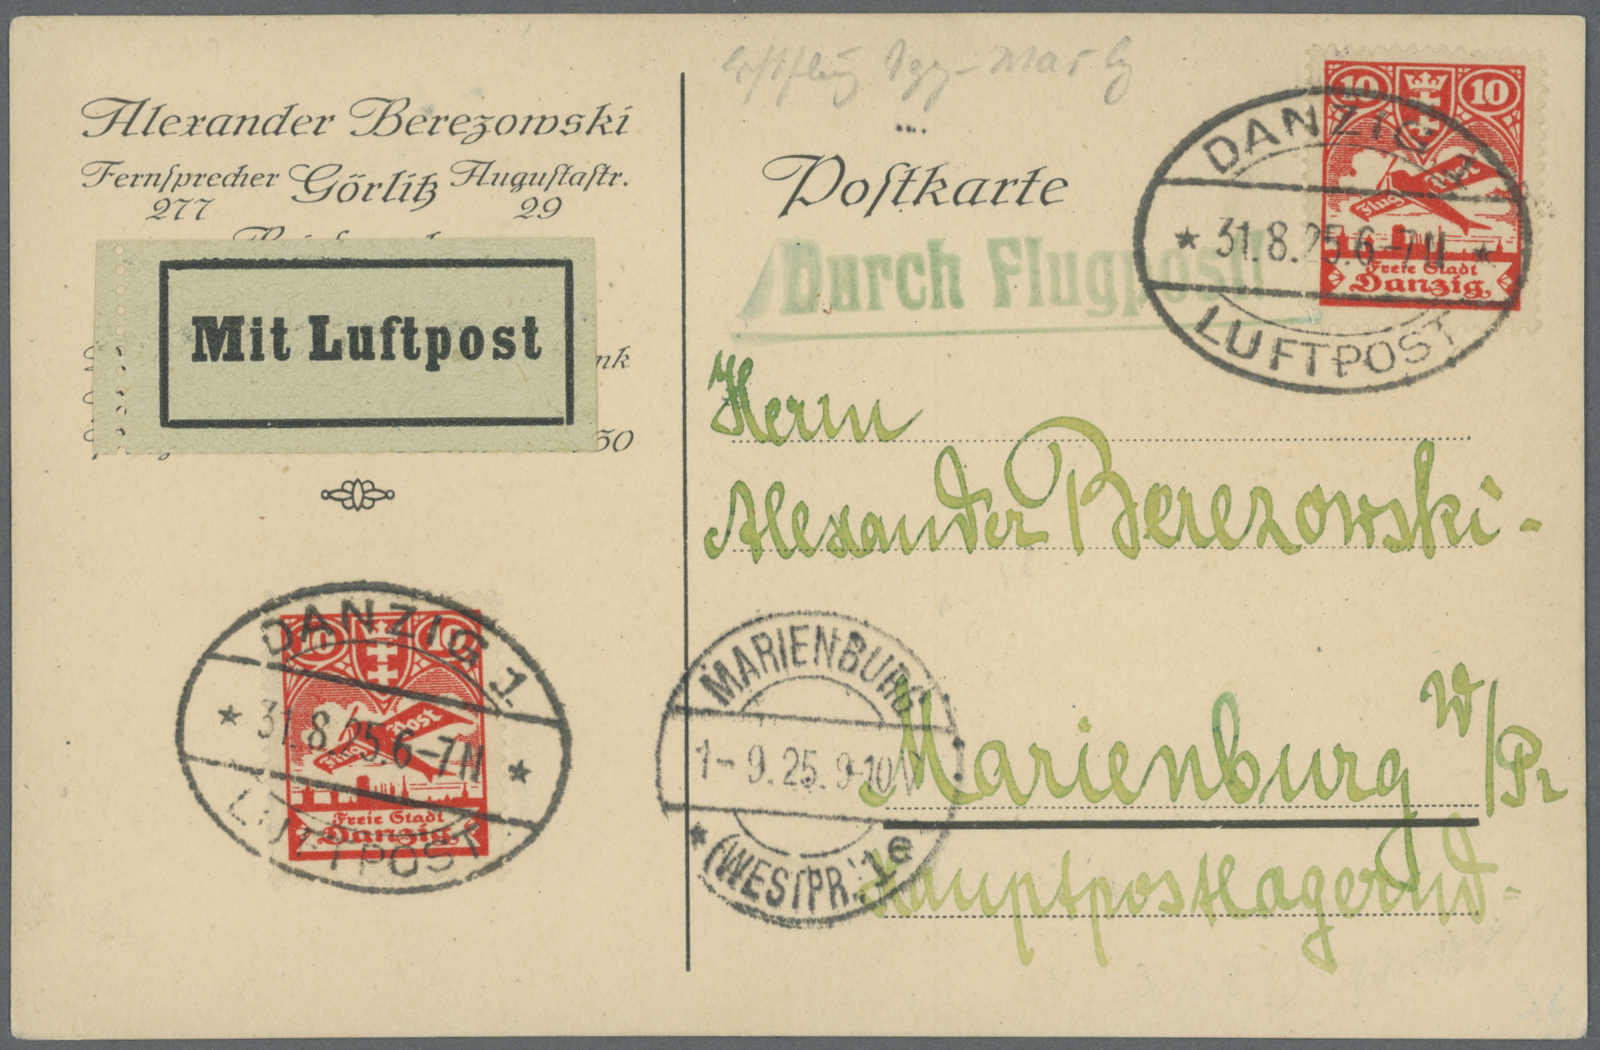 Alexander Berezowski
Fernſprecher Görlitz Auguſtaſtr.
277 29
Mit Luftpost
nk
50
Poſtkarte
Durch Flugpost!
10 10
Flug Post
Freie Stadt
Danzig
DANZIG 1
* 31.8.25.6-7N *
LUFTPOST
Herrn
Alexander Berezowski-
Marienburg W/Pr
Hauptpostlagernd-
10 10
Flug Post
Freie Stadt
Danzig
DANZIG 1
* 31.8.25.6-7N *
LUFTPOST
MARIENBURG
1-9.25.9-10V
* (WESTPR.) 1e